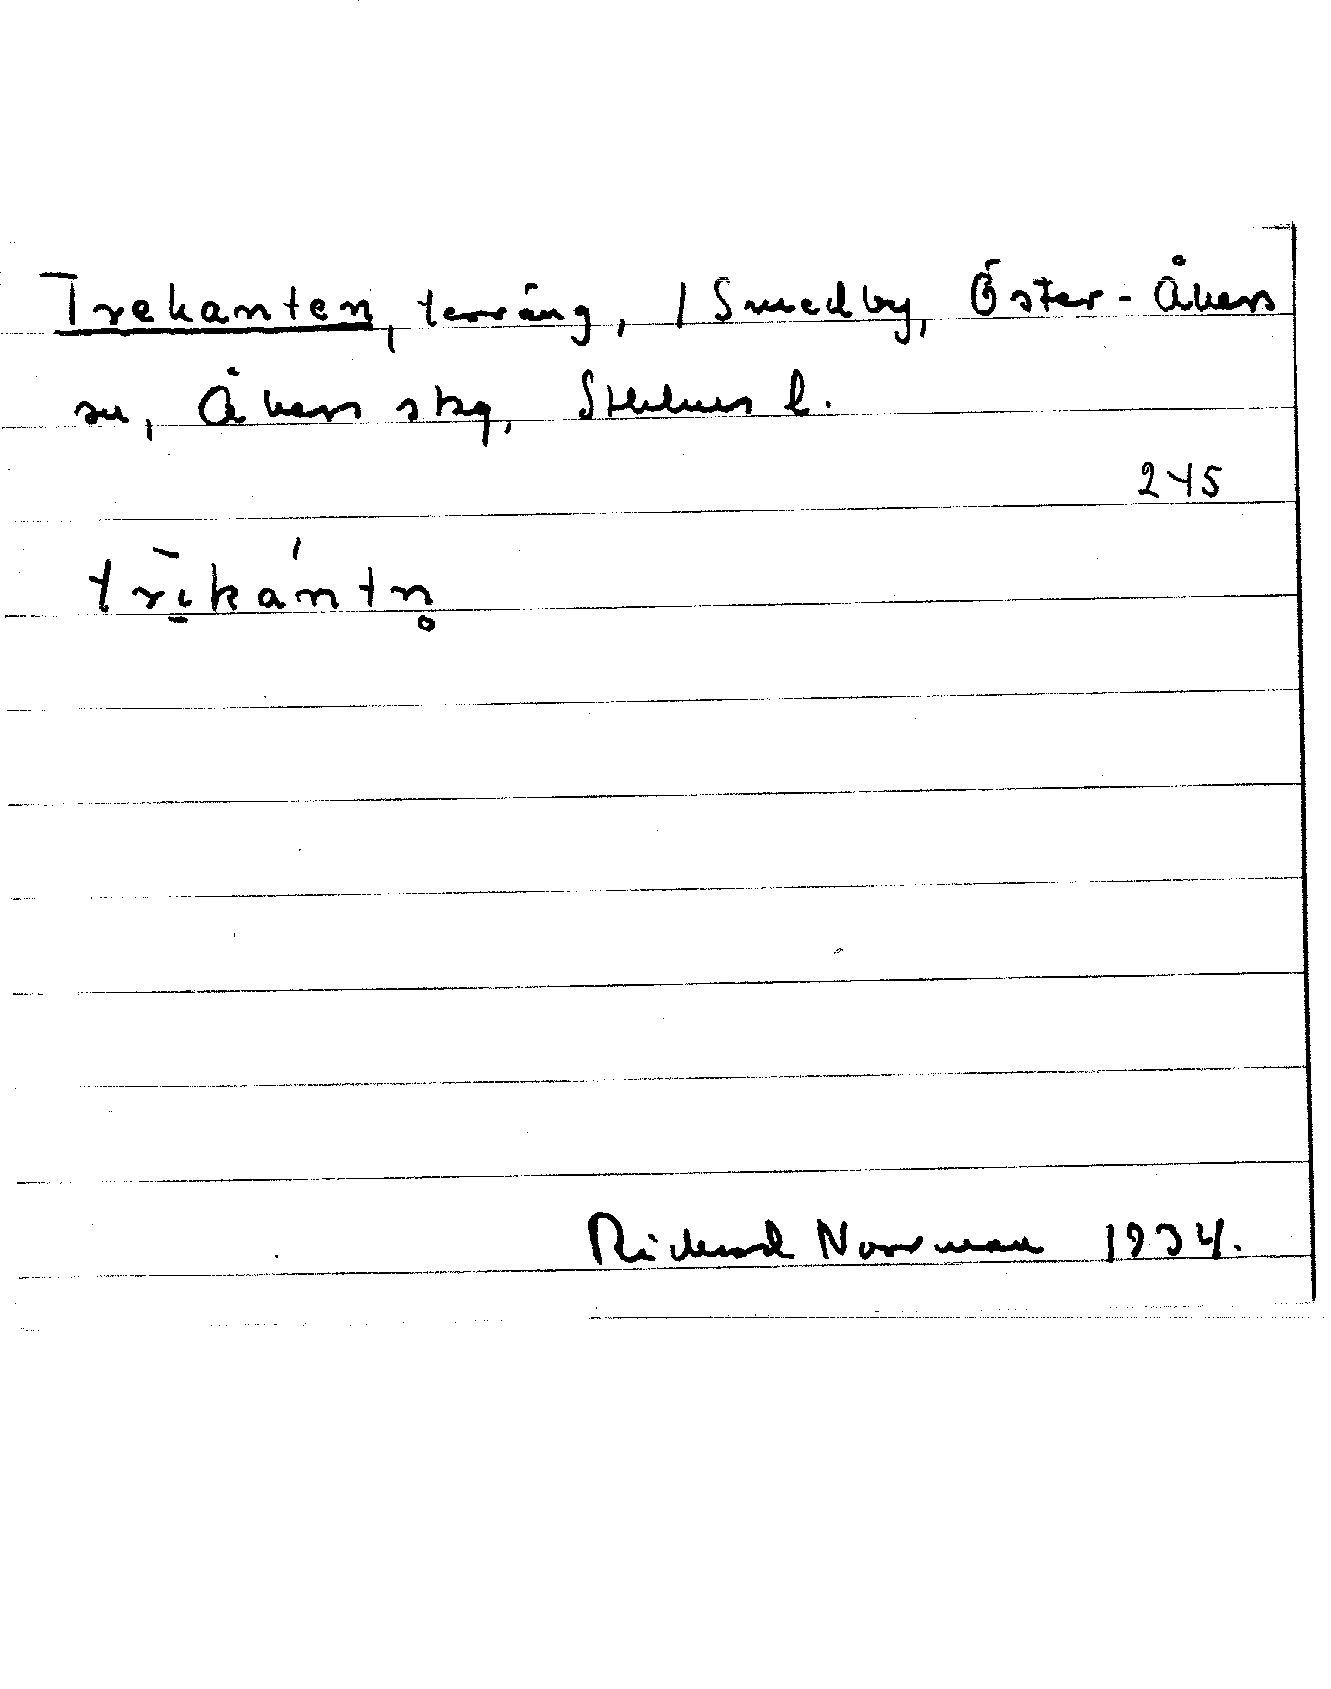 Trekanten, terräng, / Smedby, Öster-Åkers
sn, Åkers skg, Sthlms l.
245
trīkántn̥
Richard Norrman 1934.